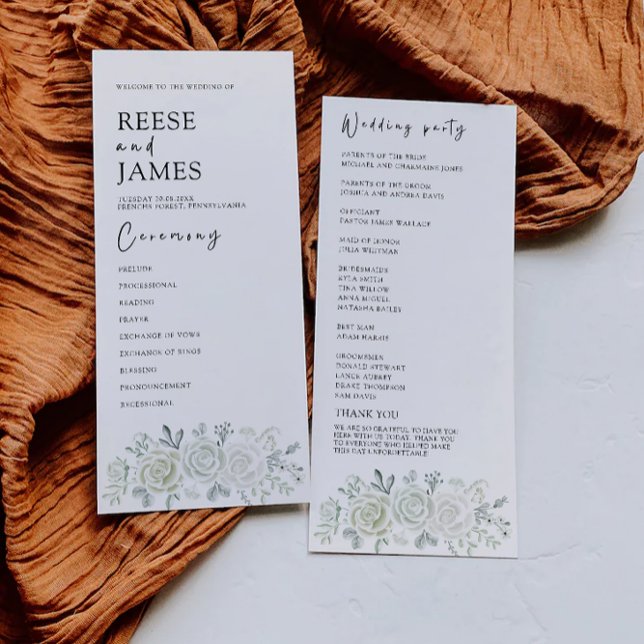 WELCOME TO THE WEDDING OF
REESE
and
JAMES
TUESDAY 20.08.20XX
FRENCHS FOREST, PENNSYLVANIA
Ceremony
PRELUDE
PROCESSIONAL
READING
PRAYER
EXCHANGE OF VOWS
EXCHANGE OF RINGS
BLESSING
PRONOUNCEMENT
RECESSIONAL
Wedding party
PARENTS OF THE BRIDE
MICHAEL AND CHARMAINE JONES
PARENTS OF THE GROOM
JOSHUA AND ANDREA DAVIS
OFFICIANT
PASTOR JAMES WALLACE
MAID OF HONOR
JULIA WHITMAN
BRIDESMAIDS
KYLA SMITH
TINA WILLOW
ANNA MIGUEL
NATASHA BAILEY
BEST MAN
ADAM HARRIS
GROOMSMEN
RONALD STEWART
LANCE AUBREY
DRAKE THOMPSON
SAM DAVIS
THANK YOU
WE ARE SO GRATEFUL TO HAVE YOU
HERE WITH US TODAY. THANK YOU
TO EVERYONE WHO HELPED MAKE
THIS DAY UNFORGETTABLE!